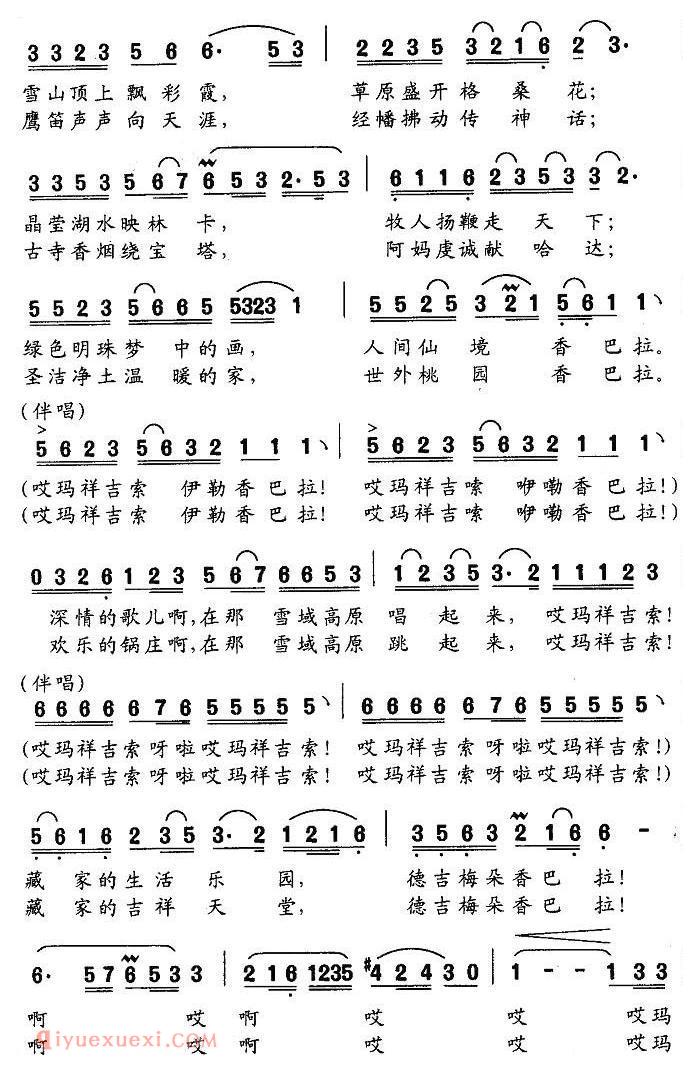 3 3 2 3 5 6 6· 5 3 | 2 2 3 5 3 2 1 6 2 3·
雪山顶上飘彩霞， 草原盛开格桑花；
鹰笛声声向天涯， 经幡拂动传神话；
3 3 5 3 5 6 7 6 5 3 2·5 3 | 6 1 1 6 2 3 5 3 3 2·
晶莹湖水映林卡， 牧人扬鞭走天下；
古寺香烟绕宝塔， 阿妈虔诚献哈达；
5 5 2 3 5 6 6 5 5323 1 | 5 5 2 5 3 2 1 5 6 1 1
绿色明珠梦中的画， 人间仙境香巴拉。
圣洁净土温暖的家， 世外桃园香巴拉。
(伴唱)
5 6 2 3 5 6 3 2 1 1 1 | 5 6 2 3 5 6 3 2 1 1 1
(哎玛祥吉索 伊勒香巴拉! 哎玛祥吉嗦 咿嘞香巴拉!)
(哎玛祥吉索 伊勒香巴拉! 哎玛祥吉嗦 咿嘞香巴拉!)
0 3 2 6 1 2 3 5 6 7 6 6 5 3 | 1 2 3 5 3· 2 1 1 1 2 3
深情的歌儿啊,在那 雪域高原 唱起来, 哎玛祥吉索!
欢乐的锅庄啊,在那 雪域高原 跳起来, 哎玛祥吉索!
(伴唱)
6 6 6 6 6 7 6 5 5 5 5 5 | 6 6 6 6 6 7 6 5 5 5 5 5
(哎玛祥吉索呀啦哎玛祥吉索! 哎玛祥吉索呀啦哎玛祥吉索!)
(哎玛祥吉索呀啦哎玛祥吉索! 哎玛祥吉索呀啦哎玛祥吉索!)
5 6 1 6 2 3 5 3· 2 1 2 1 6 | 3 5 6 3 2 1 6 6 -
藏家的生活乐园, 德吉梅朵香巴拉!
藏家的吉祥天堂, 德吉梅朵香巴拉!
6· 5 7 6 5 3 3 | 2 1 6 1235 #4 2 4 3 0 | 1 - - 1 3 3
啊 哎 啊 哎 哎 哎玛
啊 哎 啊 哎 哎 哎玛
qiyuexuexi.com